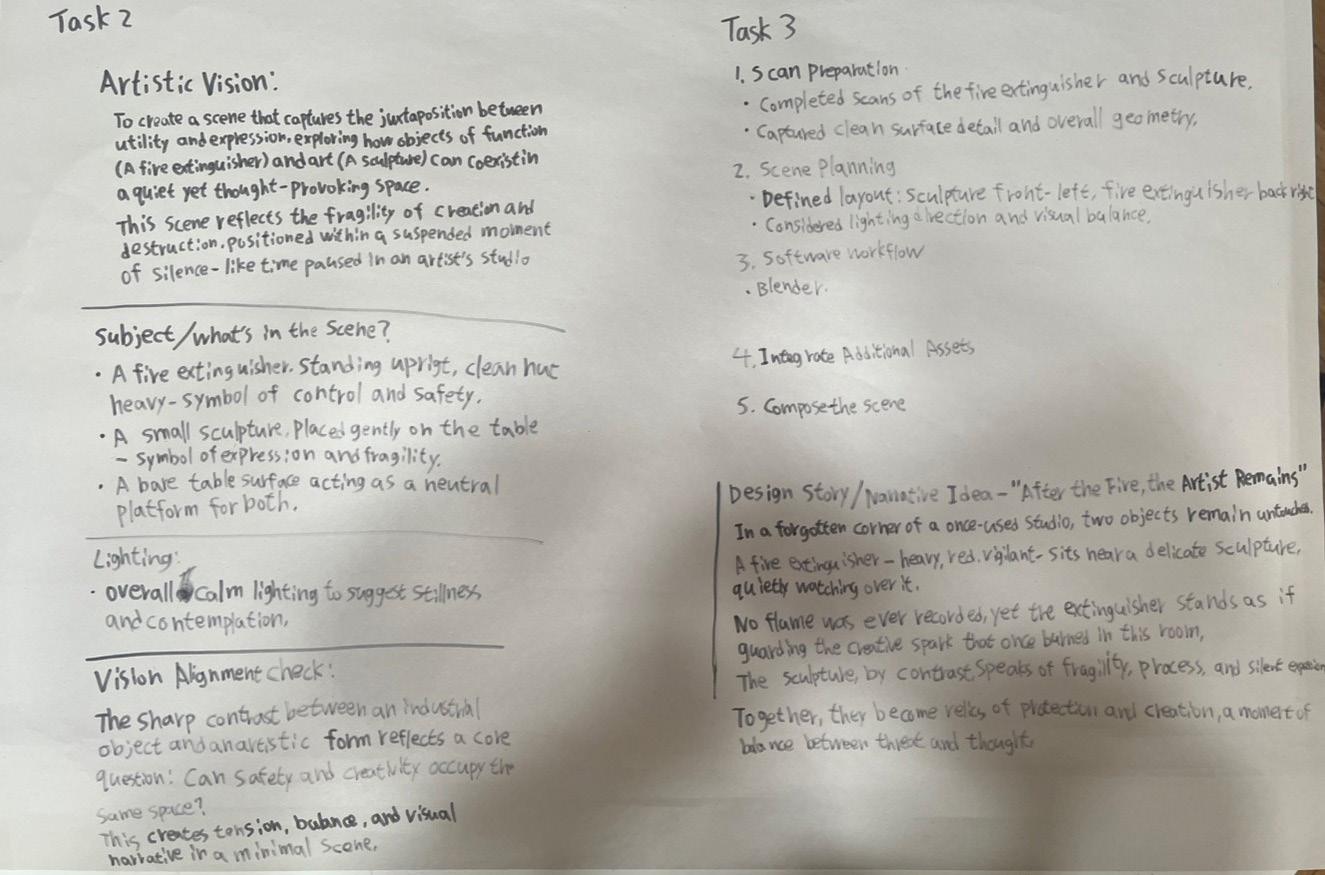 Task 2
Artistic Vision:
To create a scene that captures the juxtaposition between
utility and expression, exploring how objects of function
(A fire extinguisher) and art (A sculpture) can coexist in
a quiet yet thought-provoking space.
This scene reflects the fragility of creation and
destruction, positioned within a suspended moment
of silence-like time paused in an artist's studio
Subject/what's in the scene?
• A fire extinguisher. Standing uprigt, clean but
heavy-symbol of control and safety.
• A small sculpture, placed gently on the table
- symbol of expression and fragility.
• A bare table surface acting as a neutral
platform for both.
Lighting:
• overall calm lighting to suggest stillness
and contemplation,
Vision Alignment check:
The sharp contrast between an industrial
object and an artistic form reflects a core
question: Can safety and creativity occupy the
same space?
This creates tension, balance, and visual
narrative in a minimal scene.
Task 3
1. Scan Preparation
• Completed scans of the fire extinguisher and sculpture.
• Captured clean surface detail and overall geometry,
2. Scene Planning
• Defined layout: Sculpture front-left, fire extinguisher back right
• Considered lighting direction and visual balance.
3. Software workflow
• Blender.
4. Integrate Additional Assets
5. Compose the scene
Design Story/Narrative Idea-"After the Fire, the Artist Remains"
In a forgotten corner of a once-used studio, two objects remain
A fire extinguisher - heavy, red. vigilant- sits near a delicate sculpture,
quietly watching over it.
No flame was ever recorded, yet the extinguisher stands as if
guarding the creative spark that once burned in this room,
The sculpture, by contrast, speaks of fragility, process, and silent
Together, they become relics of protection and creation, a moment of
balance between threat and thought.